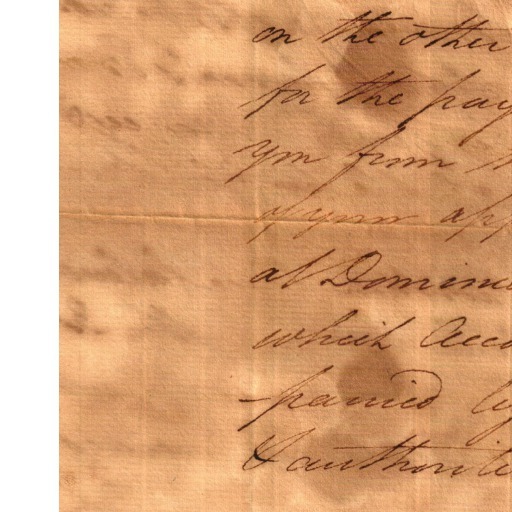 on the other
for the pay
ym from
of your app
at Domini
which Acco
-panied by
& authori